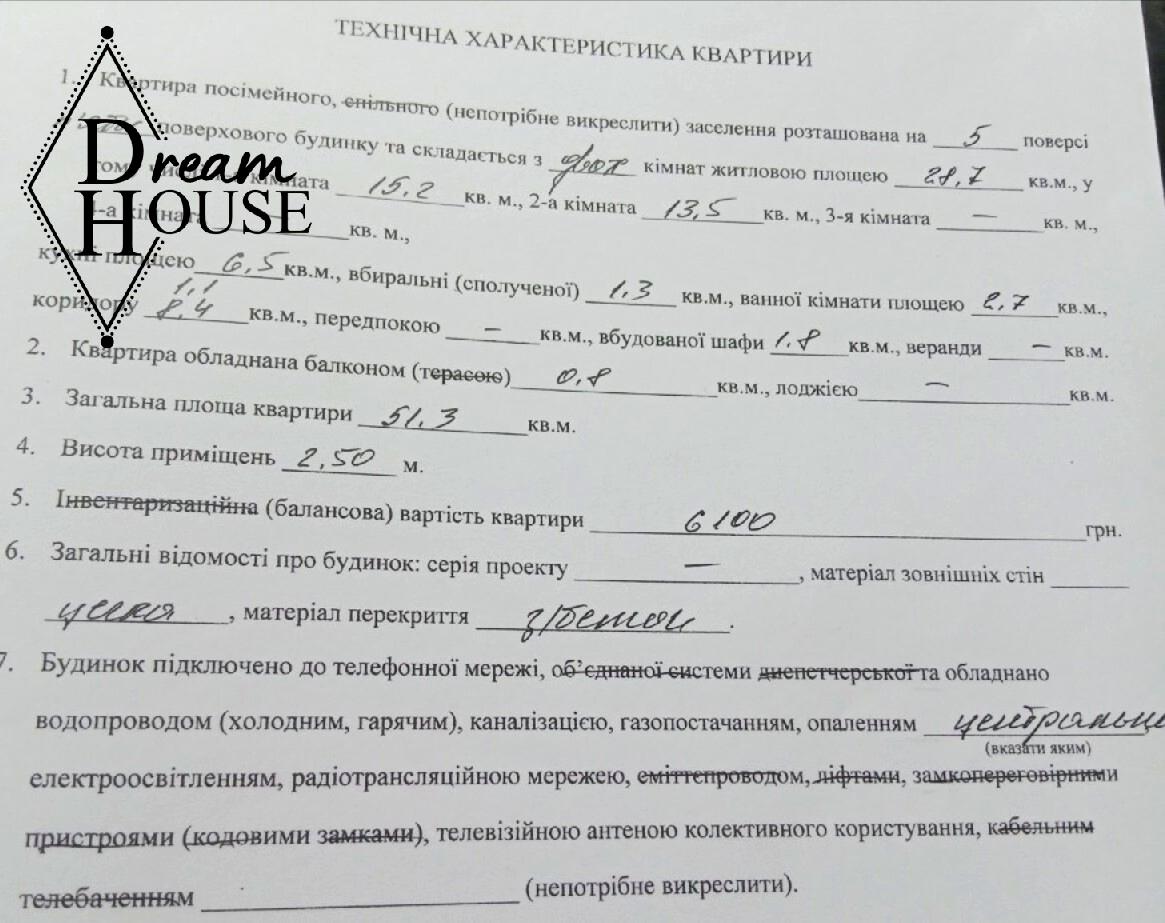 ТЕХНІЧНА ХАРАКТЕРИСТИКА КВАРТИРИ
1. Квартира посімейного, спільного (непотрібне викреслити) заселення розташована на 5 поверсі
поверхового будинку та складається з двох кімнат житловою площею 28,7 кв.м., у
тому числі кімната 15,2 кв. м., 2-а кімната 13,5 кв. м., 3-я кімната — кв. м.,
4-а кімната кв. м.,
кухні площею 6,5 кв.м., вбиральні (сполученої) 1,3 кв.м., ванної кімнати площею 2,7 кв.м.,
1,1
коридору 8,4 кв.м., передпокою — кв.м., вбудованої шафи 1.8 кв.м., веранди — кв.м.
2. Квартира обладнана балконом (терасою) 0,8 кв.м., лоджією — кв.м.
3. Загальна площа квартири 51,3 кв.м.
4. Висота приміщень 2,50 м.
5. Інвентаризаційна (балансова) вартість квартири 6100 грн.
6. Загальні відомості про будинок: серія проекту — , матеріал зовнішніх стін
цегла, матеріал перекриття з/бетон.
7. Будинок підключено до телефонної мережі, об’єднаної системи диспетчерської та обладнано
водопроводом (холодним, гарячим), каналізацією, газопостачанням, опаленням центральне
(вказати яким)
електроосвітленням, радіотрансляційною мережею, сміттєпроводом, ліфтами, замкопереговірними
пристроями (кодовими замками), телевізійною антеною колективного користування, кабельним
телебаченням (непотрібне викреслити).
Dream
HOUSE